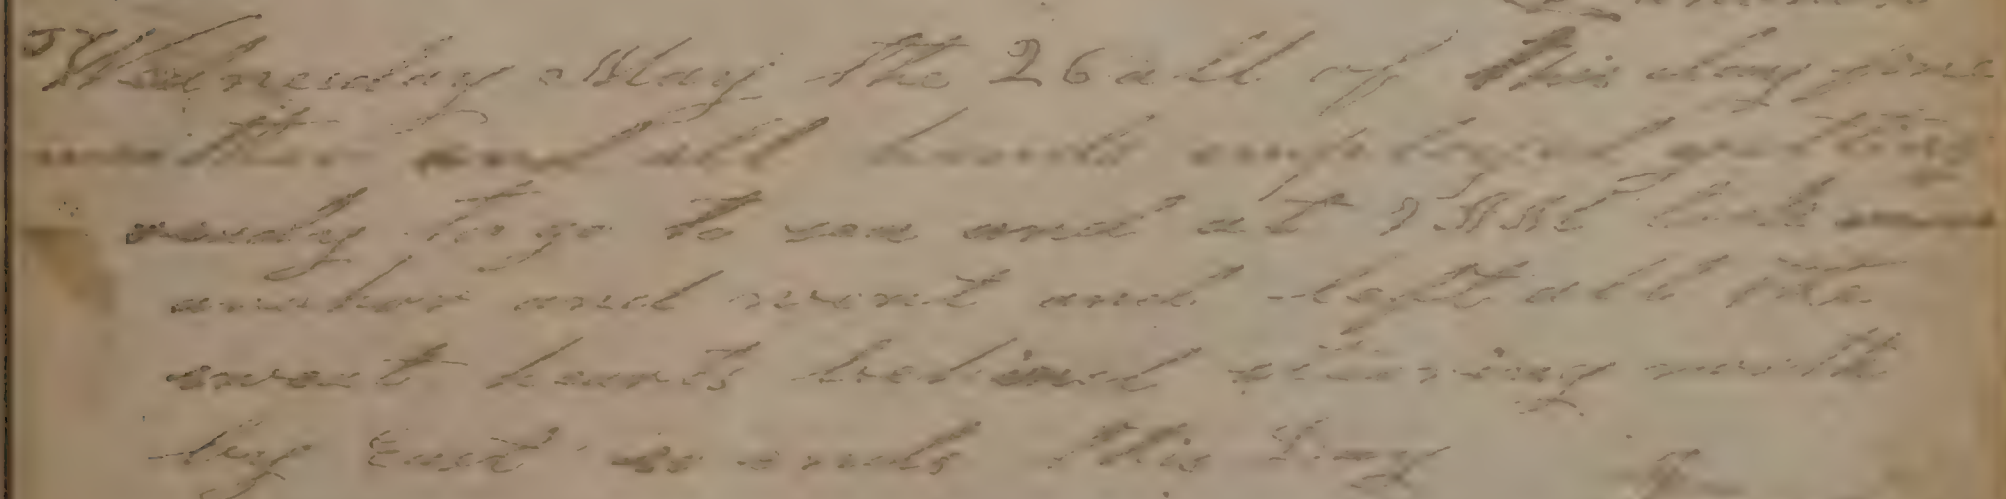 Wednesday May the 26 all of this day fine
weather and all hands employed getting
ready to go to sea and at 7 AM took
anchor and went and left all the
boats behind stearing north
by East so ends this Day